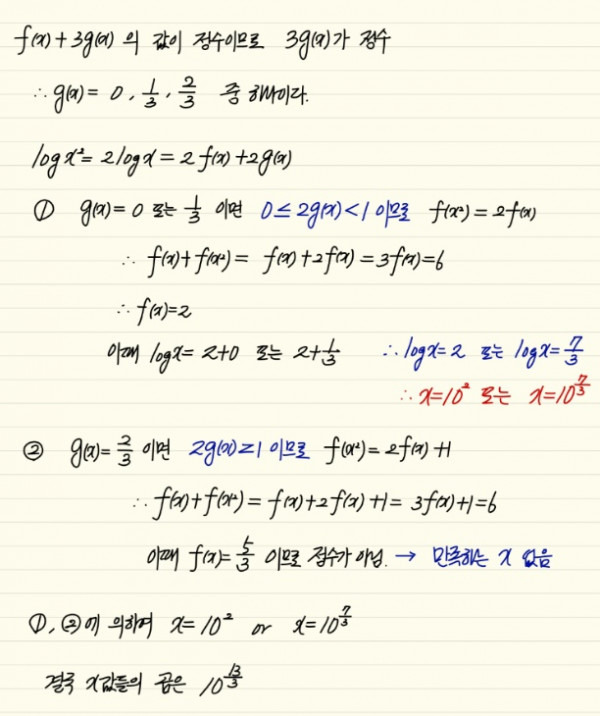 f(x)+3g(x) 의 값이 정수이므로 3g(x)가 정수
∴ g(x) = 0, 1/3, 2/3 중 하나이다.
log x² = 2 log x = 2f(x)+2g(x)
① g(x)=0 또는 1/3 이면 0≤2g(x)<1 이므로 f(x²)=2f(x)
∴ f(x)+f(x²) = f(x)+2f(x) = 3f(x)=6
∴ f(x)=2
이때 log x = 2+0 또는 2+1/3 ∴ log x=2 또는 log x=7/3
∴ x=10² 또는 x=10^(7/3)
② g(x)=2/3 이면 2g(x)≥1 이므로 f(x²)=2f(x)+1
∴ f(x)+f(x²) = f(x)+2f(x)+1 = 3f(x)+1=6
이때 f(x)=5/3 이므로 정수가 아님. → 만족하는 x 없음
①, ②에 의하여 x=10² or x=10^(7/3)
결국 x값들의 곱은 10^(13/3)